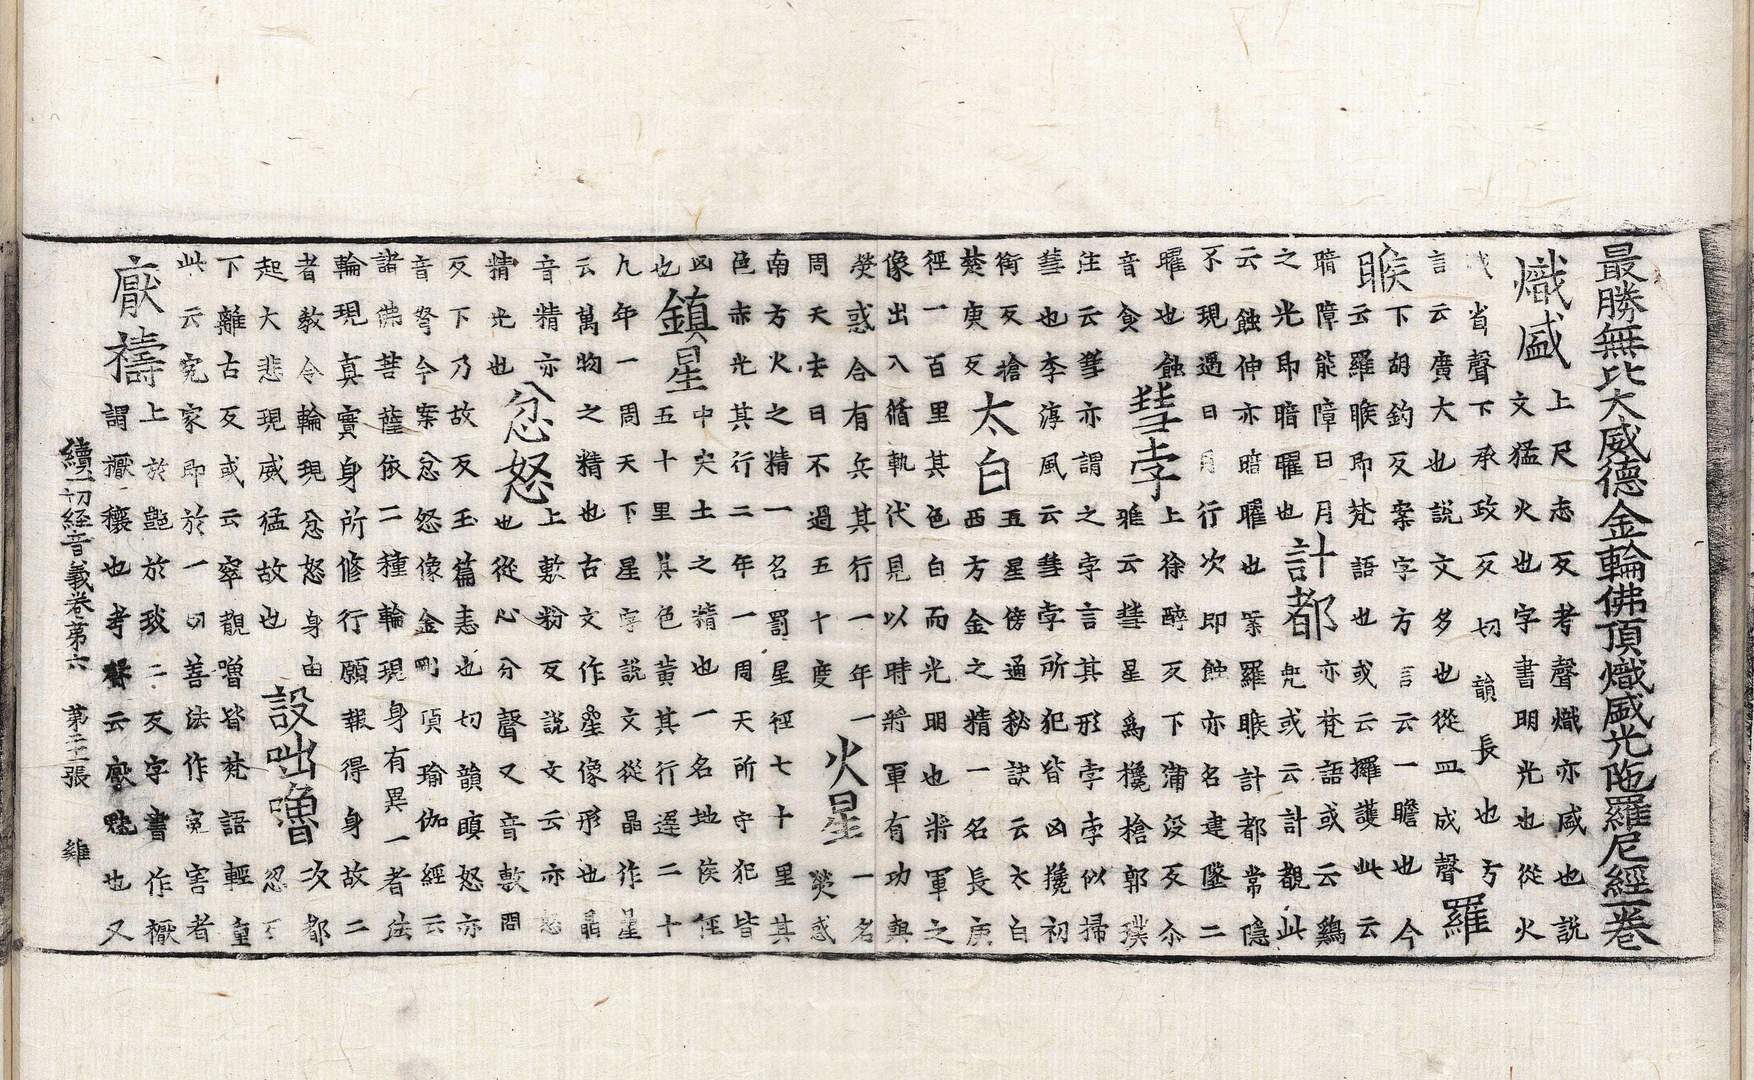 最勝無比大威德金輪佛頂熾盛光陁羅尼經一卷
熾盛
上尺志反考聲熾亦盛也說
文猛火也字書明光也從火
省聲下承政反切韻長也方
言云廣大也說文多也從皿成聲
羅睺
下胡鈎反案字方言云一瞻也今
云羅睺即梵語也或云攞護此云
暗障能障日月
之光即暗曜也
計都
亦梵語或云鷄
兠或云計覩此
云蝕伸亦暗曜也案羅睺計都常隱
不現遇日月行次即蝕亦名建墜二
曜也蝕
音食
彗孛
上徐醉反下蒲没反尒
雅云彗星爲攙搶郭璞
注云彗亦謂之孛言其形孛孛似掃
彗也李淳風云彗孛所犯皆凶攙初
銜反搶
楚庚反
太白
五星傍通秘訣云太白
西方金之精一名長庚
徑一百里其色白而光明也將軍之
像出入循軌伐見以時將軍有功與
熒惑合有兵其行一年一
周天去日不過五十度
火星
一名
熒惑
南方火之精一名罰星徑七十里其
色赤光其行二年一周天所守犯皆
凶
也
鎮星
中央土之精也一名地侯徑
五十里其色黄其行遲二十
九年一周天下星字說文從晶作星
云萬物之精也古文作曐像形也晶
音精亦
精光也
忿怒
上敷粉反說文云亦怒
也從心分聲又音敷問
反下乃故反玉篇恚也切韻瞋怒亦
音弩今案忿怒像金剛頂瑜伽經云
諸佛菩薩依二種輪現身有異一者法
輪現真實身所修行願報得身故二
者教令輪現忿怒身由
起大悲現威猛故也
設咄嚕
次都
忍
下離古反或云窣覩嚕皆梵語輕重
此云寃家即於一切善法作寃害者
厭禱
上於艶於琰二反字書作檿
謂檿穰也考聲云厭魅也又
續一切經音義卷第六